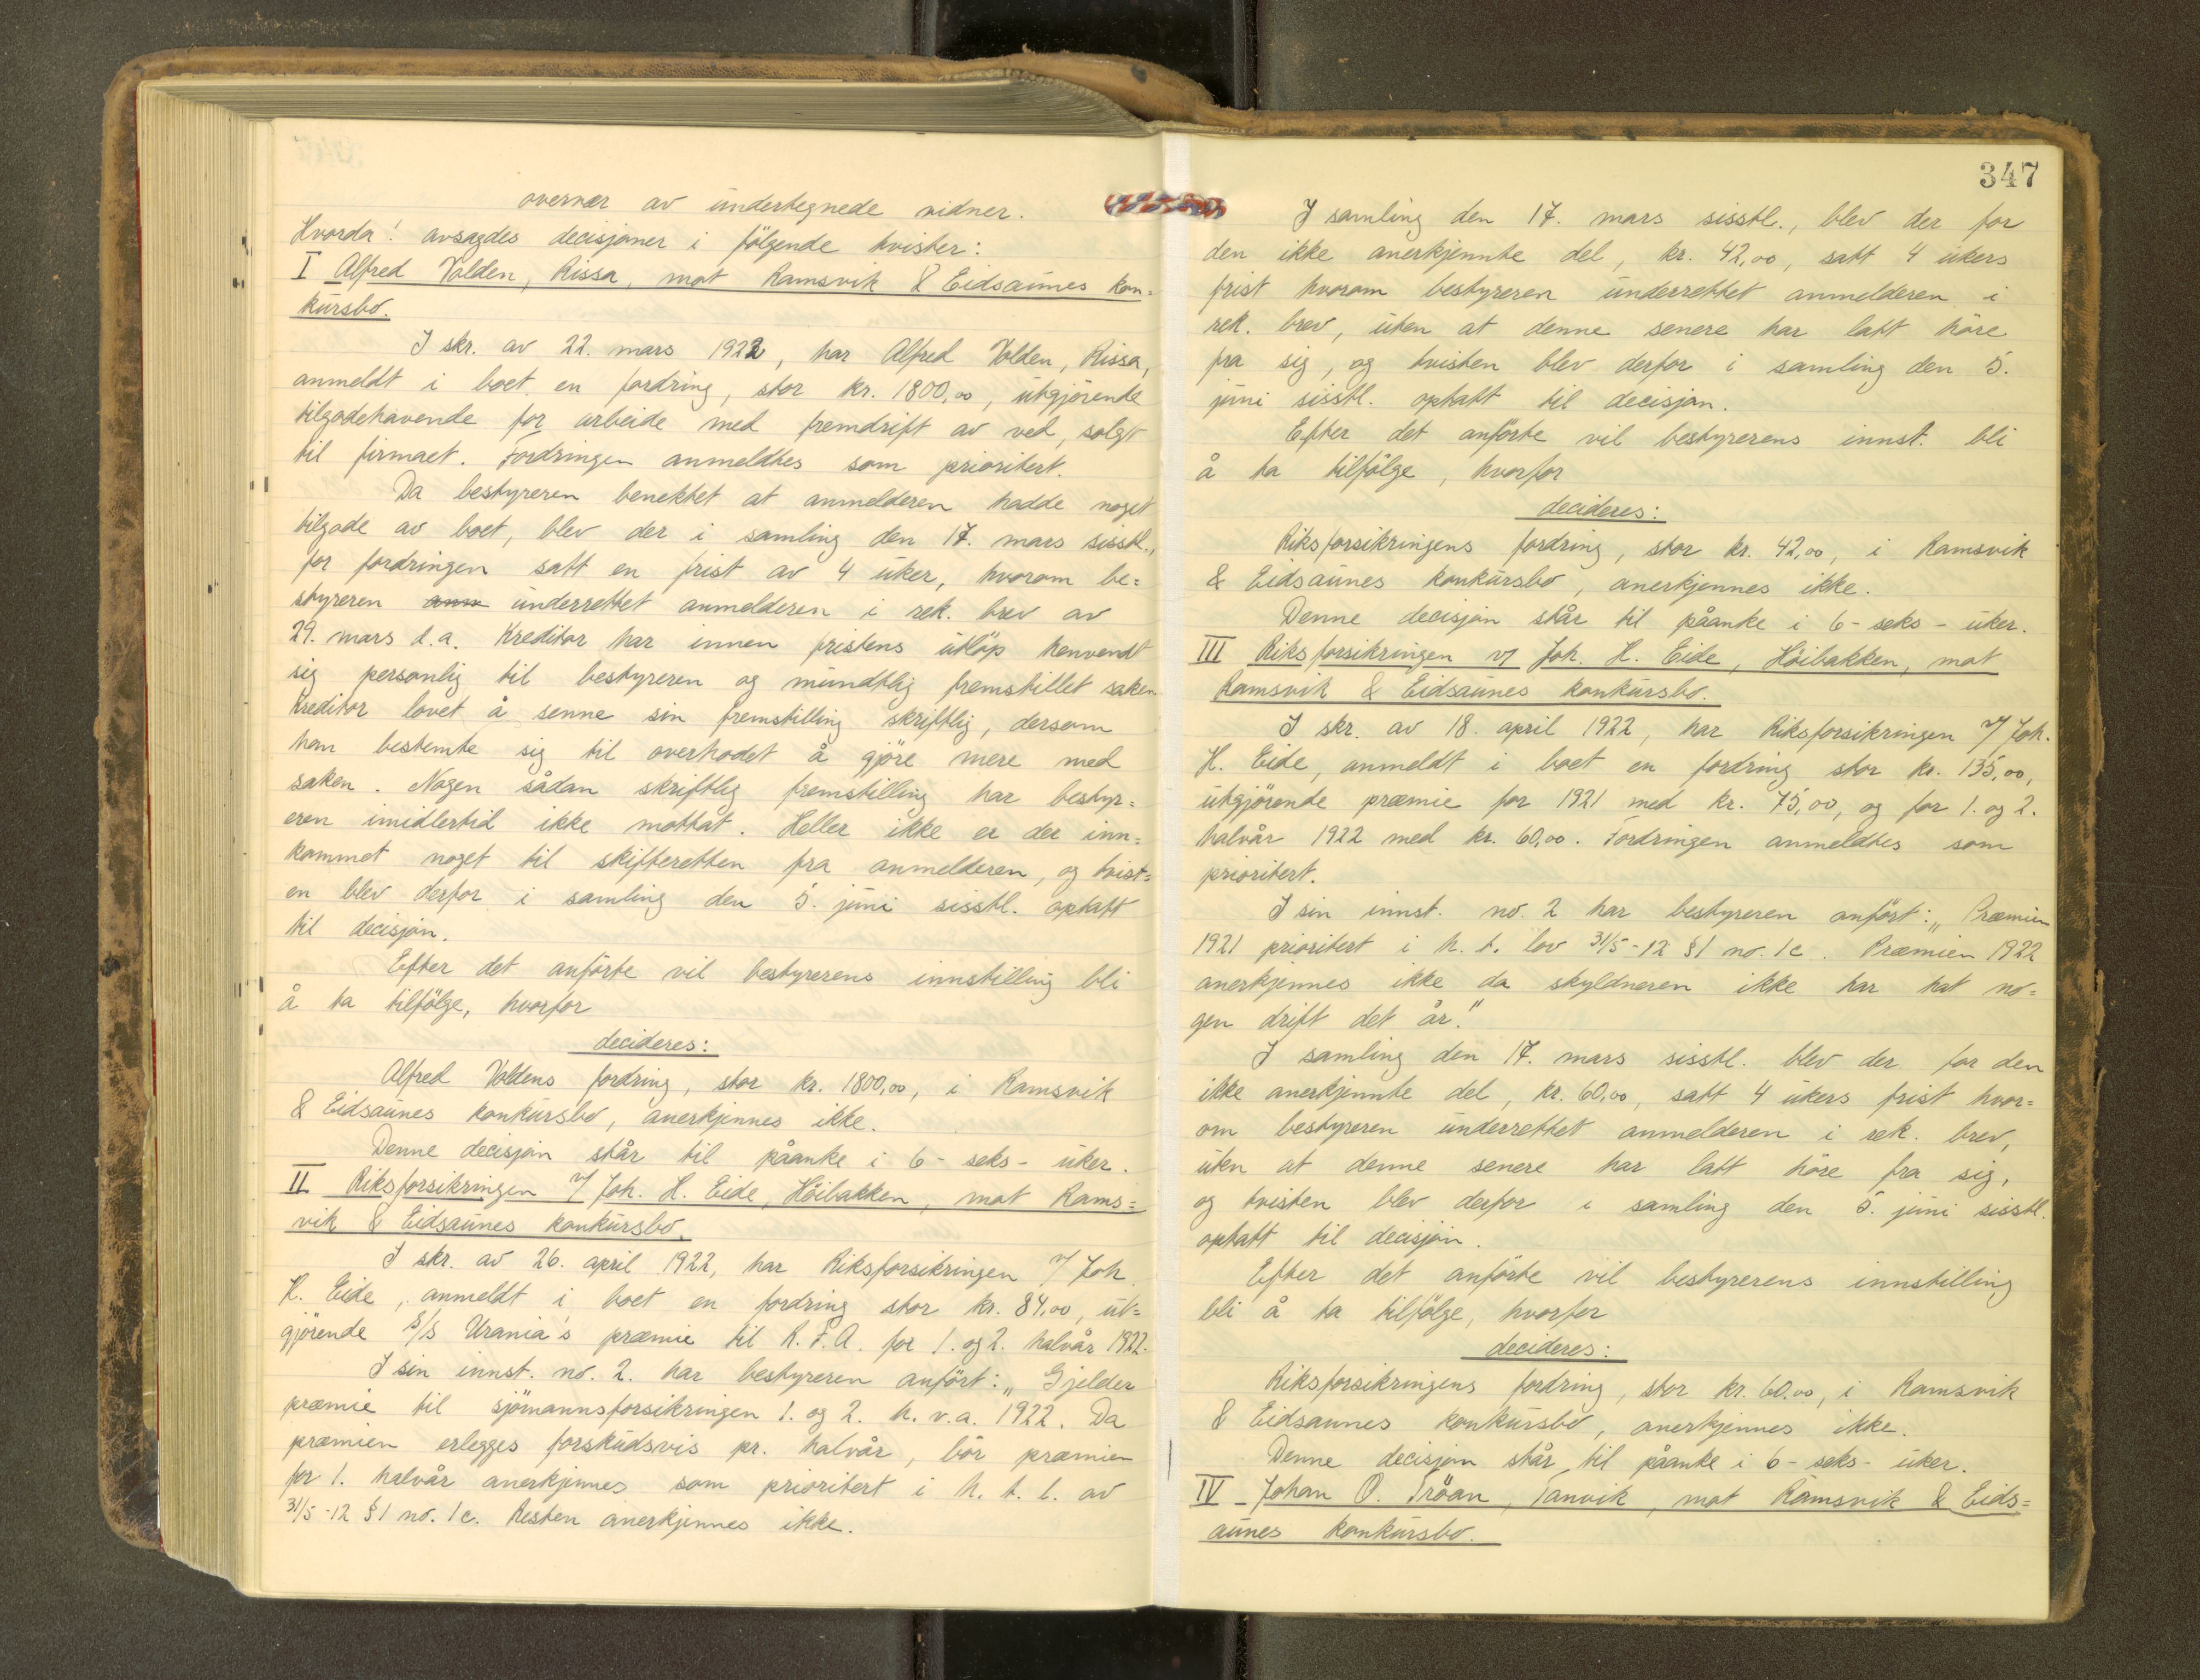 overvær av undertegnede vidner.
Hvorda! avsagdes decisjoner i følgende tvister:
I Alfred Volden, Rissa, mot Ramsvik & Eidsaunes kon=
kursbo.
I skr. av 22. mars 1922, har Alfred Volden, Rissa,
anmeldt i boet en fordring, stor kr. 1800,00, utgjörende
tilgodehavende for arbeide med fremdrift av ved, solgt
til firmaet. Fordringen anmeldtes som prioritert.
Da bestyreren benektet at anmelderen hadde noget
tilgode av boet, blev der i samling den 17. mars sisstl.,
for fordringen satt en frist av 4 uker, hvorom be=
styreren anm underrettet anmelderen i rek. brev av
29. mars d.a. Kreditor har innen fristens utlöp henvendt
sig personlig til bestyreren og mundtlig fremstillet saken.
Kreditor lovet å senne sin fremstilling skriftlig, dersom
han bestemte sig til overhodet å gjöre mere med
saken. Nogen sådan skriftlig fremstilling har bestyr=
eren imidlertid ikke mottat. Heller ikke er der inn=
kommet noget til skifteretten fra anmelderen, og tvist=
en blev derfor i samling den 5. juni sisstl. optatt
til decisjon.
Efter det anförte vil bestyrerens innstilling bli
å ta tilfölge, hvorfor
decideres:
Alfred Voldens fordring, stor kr. 1800,00, i Ramsvik
& Eidsaunes konkursbo, anerkjennes ikke.
Denne decisjon står til påanke i 6 - seks - uker.
II Riksforsikringen v/ Joh. H. Eide, Höibakken, mot Rams=
vik & Eidsaunes konkursbo.
I skr. av 26. april 1922, har Riksforsikringen v/ Joh.
H. Eide, anmeldt i boet en fordring stor kr. 84,00, ut=
gjörende s/s Urania's præmie til R.F.A. for 1. og 2. halvår 1922.
I sin innst. no. 2. har bestyreren anfört: „Gjelder
præmie til sjömannsforsikringen 1. og 2. h.v.a. 1922. Da
præmien erlegges forskudsvis pr. halvår, bör præmien
for 1. halvår anerkjennes som prioritert i h. t. l. av
31/5-12 §1 no. 1c. Resten anerkjennes ikke.
347
I samling den 17. mars sisstl., blev der for
den ikke anerkjennte del, kr. 42,00, satt 4 ukers
frist hvorom bestyreren underrettet anmelderen i
rek. brev, uten at denne senere har latt höre
fra sig, og tvisten blev derfor i samling den 5.
juni sisstl. optatt til decisjon.
Efter det anförte vil bestyrerens innst. bli
å ta tilfölge, hvorfor
decideres:
Riksforsikringens fordring, stor kr. 42,00, i Ramsvik
& Eidsaunes konkursbo, anerkjennes ikke.
Denne decisjon står til påanke i 6 - seks - uker.
III Riksforsikringen v/ Joh. H. Eide, Höibakken, mot
Ramsvik & Eidsaunes konkursbo.
I skr. av 18. april 1922, har Riksforsikringen v/ Joh.
H. Eide, anmeldt i boet en fordring stor kr. 135,00,
utgjörende præmie for 1921 med kr. 75,00, og for 1. og 2.
halvår 1922 med kr. 60,00. Fordringen anmeldtes som
prioritert.
I sin innst. no. 2 har bestyreren anfört: „Præmien
1921 prioritert i h. t. lov 31/5-12 §1 no. 1c. Præmien 1922
anerkjennes ikke da skyldneren ikke har hat no=
gen drift det år."
I samling den 17. mars sisstl. blev der for den
ikke anerkjennte del, kr. 60,00, satt 4 ukers frist hvor=
om bestyreren underrettet anmelderen i rek. brev,
uten at denne senere har latt höre fra sig,
og tvisten blev derfor i samling den 5. juni sisstl.
optatt til decisjon.
Efter det anförte vil bestyrerens innstilling
bli å ta tilfölge, hvorfor
decideres:
Riksforsikringens fordring, stor kr. 60,00, i Ramsvik
& Eidsaunes konkursbo, anerkjennes ikke.
Denne decisjon står til påanke i 6 - seks - uker.
IV - Johan O. Tröan, Tanvik, mot Ramsvik & Eids=
aunes konkursbo.